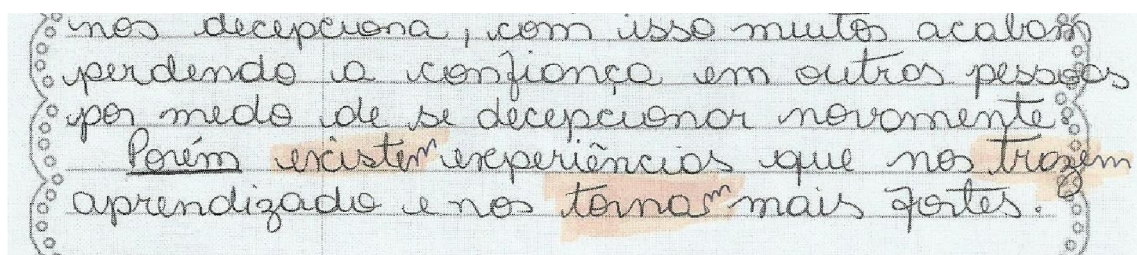 nos decepciona, com isso muitos acabam
perdendo a confiança em outras pessoas
por medo de se decepcionar novamente.
Porém existem experiências que nos trazem
aprendizado e nos tornam mais fortes.